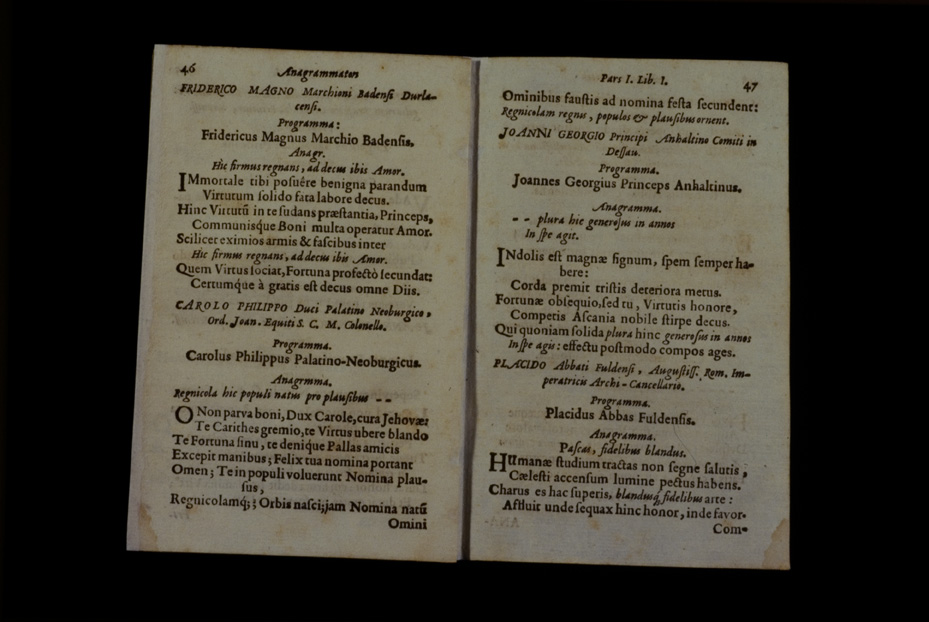 46
Anagrammaton
FRIDERICO MAGNO Marchioni Badensi Durla-
censi.
Programma:
Fridericus Magnus Marchio Badensis.
Anagr.
Hic firmus regnans, ad decus ibis Amor.
IMmortale tibi posuêre benigna parandum
Virtutum solido fata labore decus.
Hinc Virtutū in te sudans præstantia, Princeps,
Communisque Boni multa operatur Amor.
Scilicet eximios armis & fascibus inter
Hic firmus regnans, ad decus ibis Amor.
Quem Virtus sociat, Fortuna profectò secundat:
Certumque à gratis est decus omne Diis.
CAROLO PHILIPPO Duci Palatino Neoburgico,
Ord. Joan. Equiti S. C. M. Colonello.
Programma.
Carolus Philippus Palatino-Neoburgicus.
Anagrmma.
Regnicola hic populi natus pro plausibus - -
O Non parva boni, Dux Carole, cura Jehovæ:
Te Carithes gremio, te Virtus ubere blando
Te Fortuna sinu, te denique Pallas amicis
Excepit manibus; Felix tua nomina portant
Omen; Te in populi voluerunt Nomina plau-
sus,
Regnicolamq́;; Orbis nasci; jam Nomina natū
Omini
Pars I. Lib. I.
47
Ominibus faustis ad nomina festa secundent:
Regnicolam regnus, populos & plausibus ornent.
JOANNI GEORGIO Principi Anhaltino Comiti in
Dessau.
Programma.
Joannes Georgius Princeps Anhaltinus.
Anagramma.
- - plura hic generosus in annos
In spe agit.
INdolis est magnæ signum, spem semper ha-
bere:
Corda premit tristis deteriora metus.
Fortunæ obsequio, sed tu, Virtutis honore,
Competis Ascania nobile stirpe decus.
Qui quoniam solida plura hinc generosus in annos
In spe agis: effectu postmodo compos ages.
PLACIDO Abbati Fuldensi, Augustiss. Rom. Im-
peratricis Archi-Cancellario.
Programma.
Placidus Abbas Fuldensis.
Anagramma.
Pascas, fidelibus blandus.
HUmanæ studium tractas non segne salutis,
Cælesti accensum lumine pectus habens.
Charus es hac superis, blandusq́, fidelibus arte:
Affluit unde sequax hinc honor, inde favor.
Com-